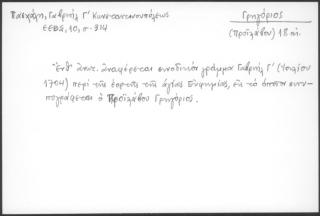 Πασχάλη, Γαβριήλ Γ' Κωνσταντινουπόλεως
ΕΕΒΣ, 10, σ. 314
Γρηγόριος
(Προϊλάβου) 18 αἰ.
Ἔνθ' ἀνωτ. ἀναφέρεται συνοδικόν γράμμα Γαβριήλ Γ' (Ἰουλίου
1704) περί τῆς ἑορτῆς τῆς ἁγίας Εὐφημίας, εἰς τό ὁποῖον συνυ-
πογράφεται ὁ Προϊλάβου Γρηγόριος.